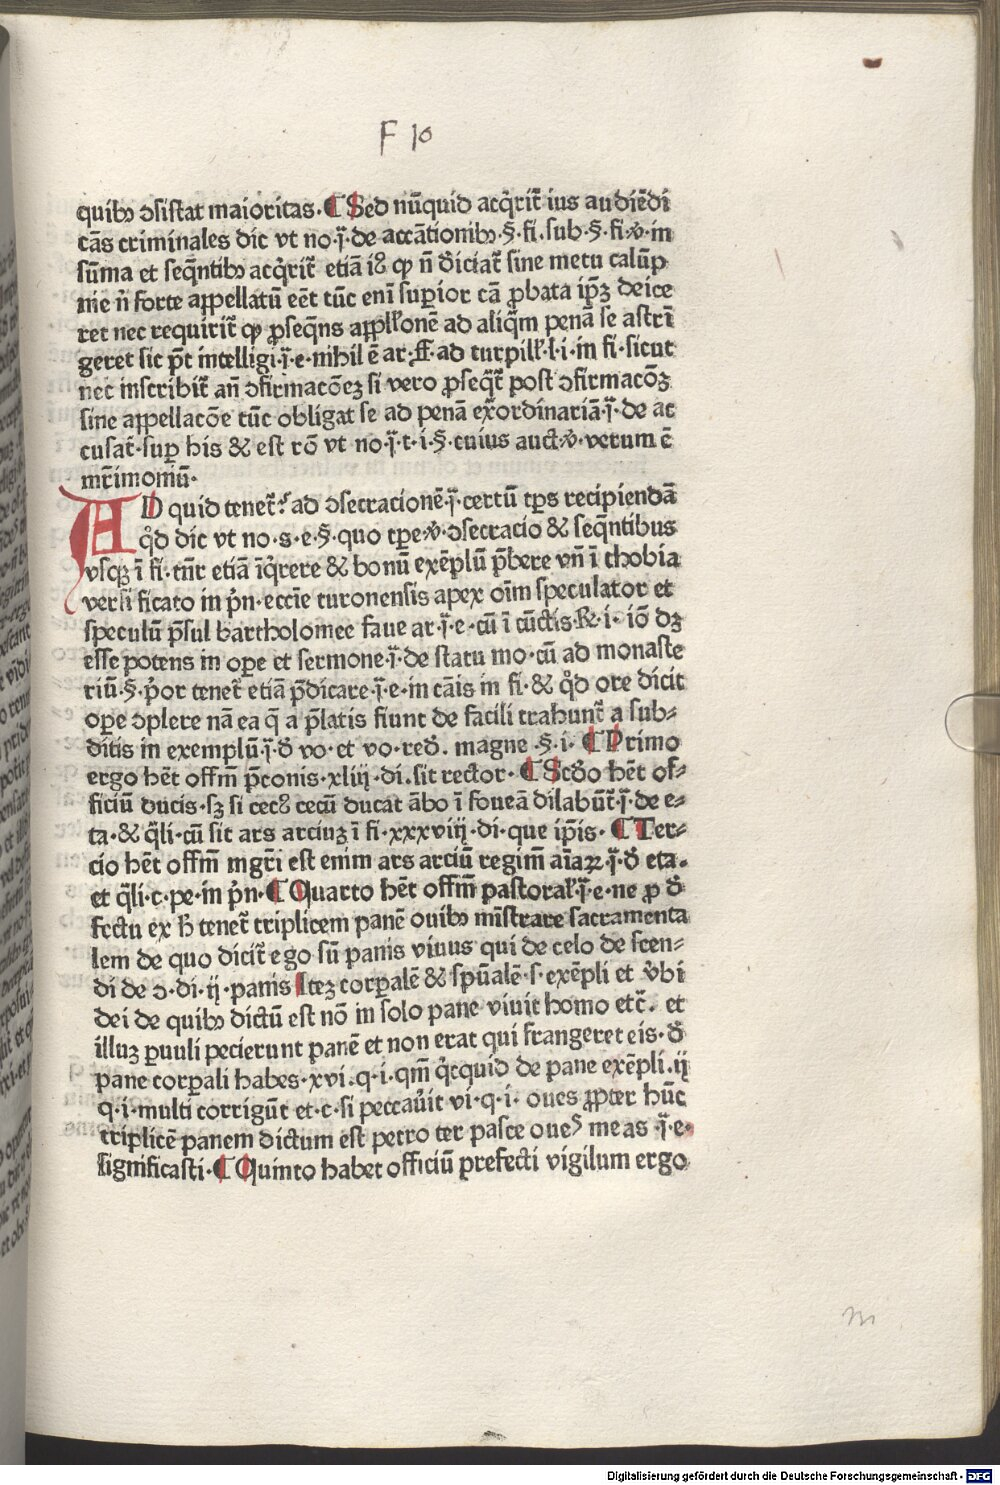 F 10
quibꝫ ↄsistat maioritas. ¶ Sed nūquid acq̄rit̄ ius audiēdi
cās criminales dic vt no. i̿. de accātionibꝫ. §. fi. sub. §. fi. v̾. in
sūma et seq̄ntibꝫ acq̄rit̄ etiā iꝫ ꝙ n̄ d̾iciat̄ sine metu calūp
nie n̄ forte appellatū eēt tūc enī supior cā ꝓbata ip̄ꝫ deice
ret nec requirit̄ ꝙ ꝓseq̄ns appll̄onē ad aliq̄m penā se astrī
geret sic p̄t intelligi. i̿. e. nihil ē ar. ff. ad turpill̄. l. i. in fi. sicut
nec inscribit̄ an̄ ↄfirmacōeꝫ si vero ꝓseq̄t̄ post ↄfirmacōꝫ
sine appellacōe tūc obligat se ad penā ex̄ordinariā. i̿. de ac
cusat̄. suꝑ his & est rō vt no. i̿. t. i. §. cuius auct. v̾. verum ē
mr̄imoniū.
AD quid tenet̄ꝰ ad ↄsecracionē. i̿. certū tꝑs recipiendā
q̊d dic vt no. s. e. §. quo tꝑe. v̾. ↄsecracio & seq̄ntibus
vsqꝫ ī fi. tn̄r etiā īq̄rere & bonū exēplū p̄bere vn̄ ī thobia
versificato in p̄n. eccīe turonensis apex oīm speculator et
speculū p̄sul bartholomee faue ar. i̿. e. cū ī cūctis. R. i. iō dꝫ
esse potens in oꝑe et sermone. i̿. de statu mo. cū ad monaste
riū. §. p̄or tenet̄ etiā p̄dicare. i̿. e. in cāis in fi. & q̊d ore dicit
oꝑe ↄplere nā ea q̄ a p̄latis fiunt de facili trahunt̄ a sub⸗
ditis in exemplū. i̿. d̾ vo. et vo. red̾. magne. §. i. ¶ Primo
ergo hēt off̄m p̄conis. xliij. di. sit rector. ¶ Scd̾o hēt of⸗
ficiū ducis. sꝫ si cecꝰ cecū ducat ābo ī foueā dilabūt̄. i̿. de e⸗
ta. & q̄li. cū sit ars arciuꝫ ī fi. xxxviij. di. que ip̄is. ¶ Ter⸗
cio hēt off̄m mgr̄i est enim ars arciū regim̄ aīaꝝ. i̿. d̾ eta.
et q̄li. c. pe. in p̄n. ¶ Quarto hēt off̄m pastoral̄. i̿. e. ne ꝓ d̾
fectu ex h̄ tenet̄ triplicem panē ouibꝫ mīstrare sacramenta
lem de quo dicit̄ ego sū panis viuus qui de celo de scen⸗
di de ↄ. di. ij. panis Iteꝫ corꝑalē & spūalē. s. exēpli et v̾bi
dei de quibꝫ dictū est nō in solo pane viuit homo etc̄. et
illuꝫ ꝑuuli pecierunt panē et non erat qui frangeret eis. d̾
pane corꝑali habes. xvi. q. i. qm̄ q̄cquid de pane exēpli. ij
q. i. multi corrigūt et. c. si peccau̾it vi. q. i. oues ꝓpter hūc
triplicē panem dictum est petro ter pasce oueꝰ meas. i̿. e.
significasti. ¶ Quinto habet officiū prefecti vigilum ergo
m
Digitalisierung gefördert durch die Deutsche Forschungsgemeinschaft - DFG